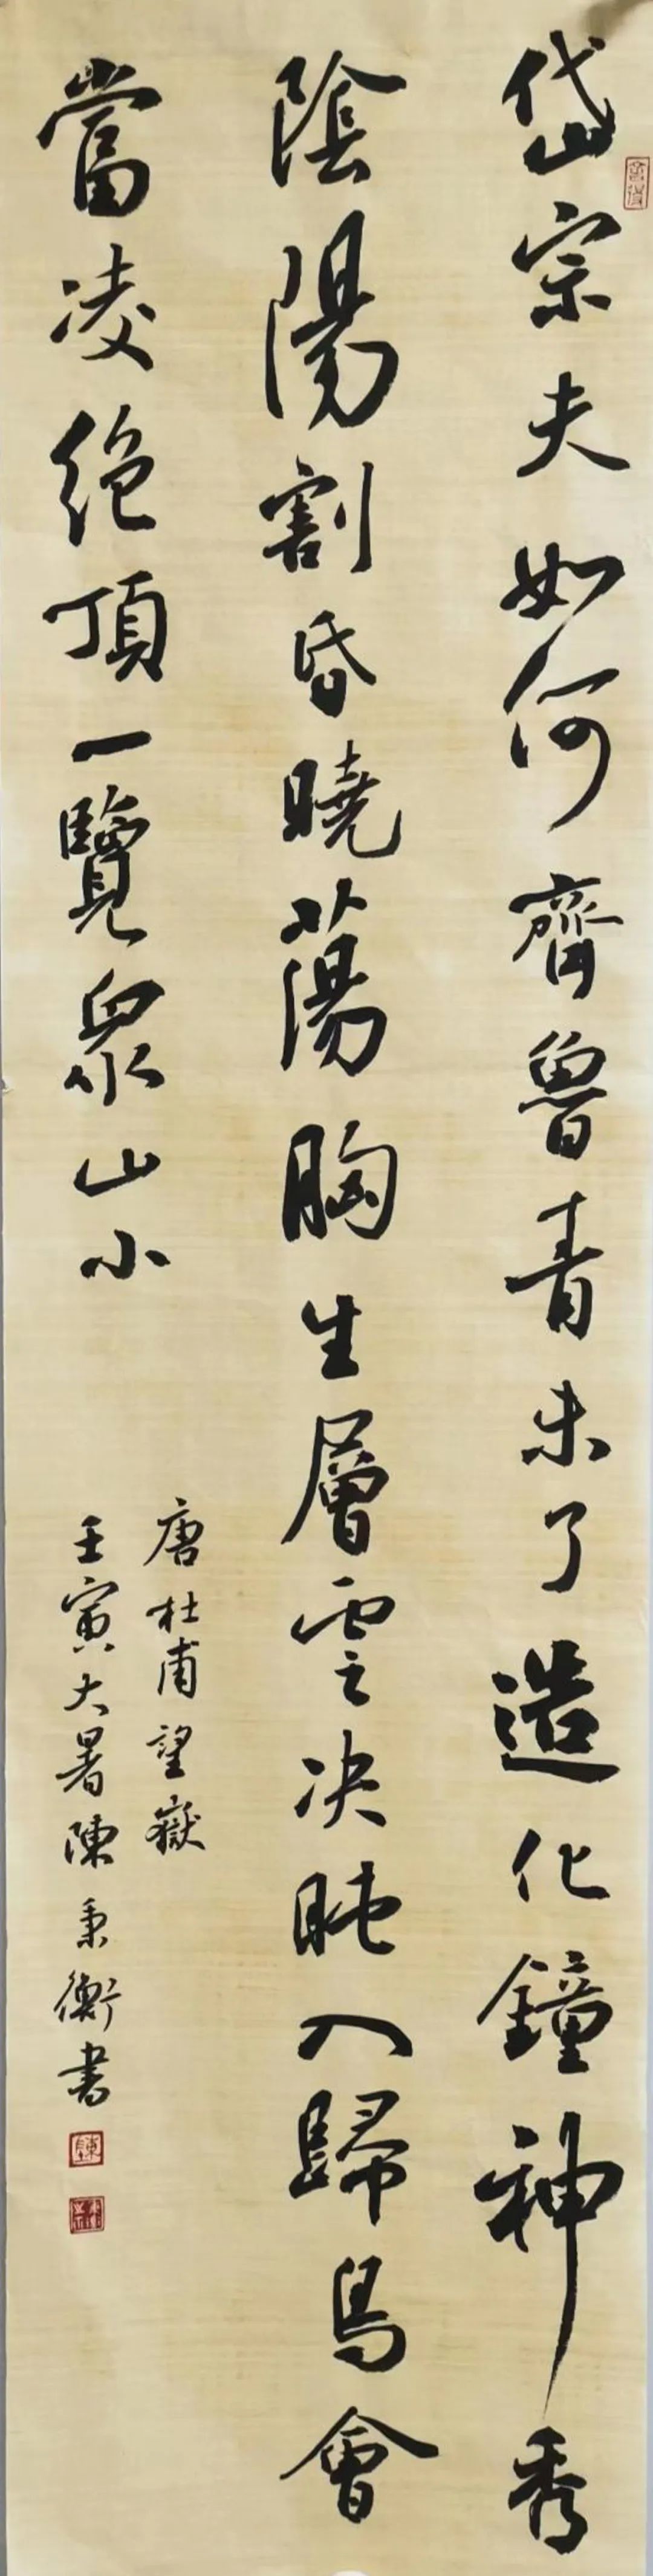 岱宗夫如何齊魯青未了造化鐘神秀
陰陽割昏曉蕩胸生層雲决眦入歸鳥會
當凌絕頂一覽衆山小
唐杜甫望嶽
壬寅大暑陳秉衡書